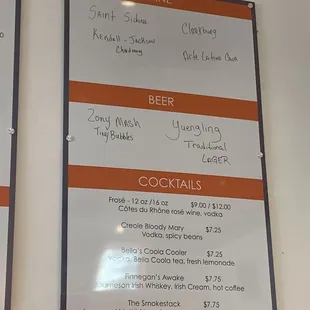 Saint Sidonie
Cloudburg
Kendall-Jackson
Chardonnay
BEER
Zony Mash
Yuengling
Tiny Bubbles
Traditional
LAGER
COCKTAILS
Frosé - 12 oz / 16 oz $9.00 / $12.00
Côtes du Rhône rosé wine, vodka
Creole Bloody Mary $7.25
Vodka, spicy beans
Bella's Coola Cooler $7.25
Vodka, Bella Coola tea, fresh lemonade
Finnegan's Awake $7.75
Jameson Irish Whiskey, Irish Cream, hot coffee
The Smokestack $7.75